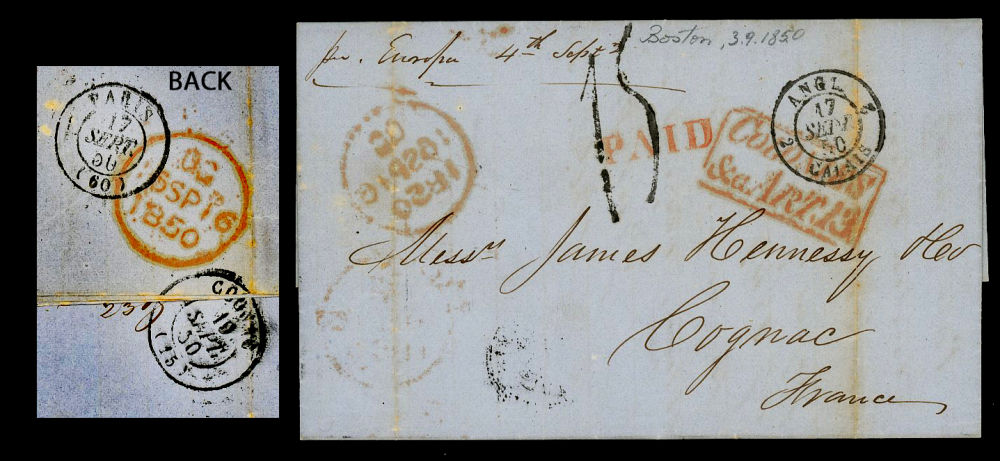 BACK
PARIS
17
SEPT.
50
(60)
SSP16
1850
23
COGNAC
19
SEPT.
50
(15)
pr. Europa 4th Sept
Boston, 3.9.1850
15
PAID
ANGL.
17
SEPT
50
2 CALAIS 2
COLONIES
&c. ART. 13.
Messrs James Hennessy & Co
Cognac
France